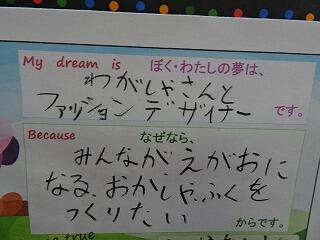 My dream is ぼく・わたしの夢は、
わがしやさんと
ファッションデザイナー です。
Because なぜなら、
みんながえがおに
なる、おかしやふくを
つくりたい からです。
true